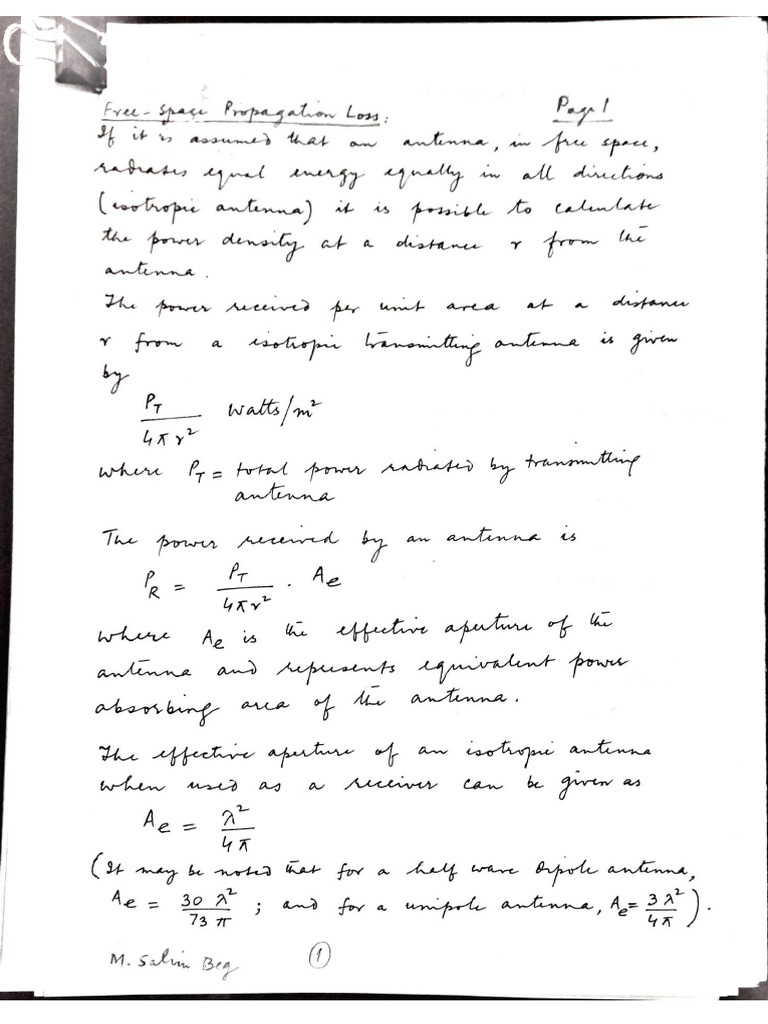 Free-Space Propagation Loss: Page 1
If it is assumed that an antenna, in free space,
radiates equal energy equally in all directions
(isotropic antenna) it is possible to calculate
the power density at a distance r from the
antenna.
The power received per unit area at a distance
r from a isotropic transmitting antenna is given
by
P_T / 4πr² watts/m²
where P_T = total power radiated by transmitting
antenna
The power received by an antenna is
P_R = P_T / 4πr² . A_e
where A_e is the effective aperture of the
antenna and represents equivalent power
absorbing area of the antenna.
The effective aperture of an isotropic antenna
when used as a receiver can be given as
A_e = λ² / 4π
(It may be noted that for a half wave dipole antenna,
A_e = 30 λ² / 73 π ; and for a unipole antenna, A_e = 3λ² / 4π).
M. Salim Beg (1)